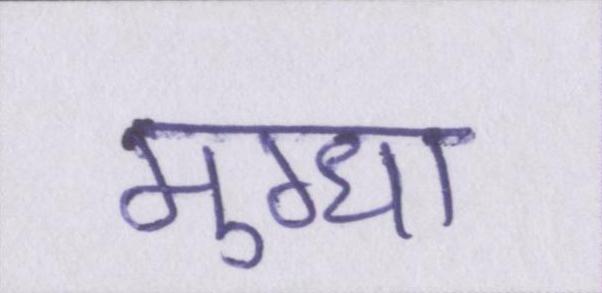 मुग्धा